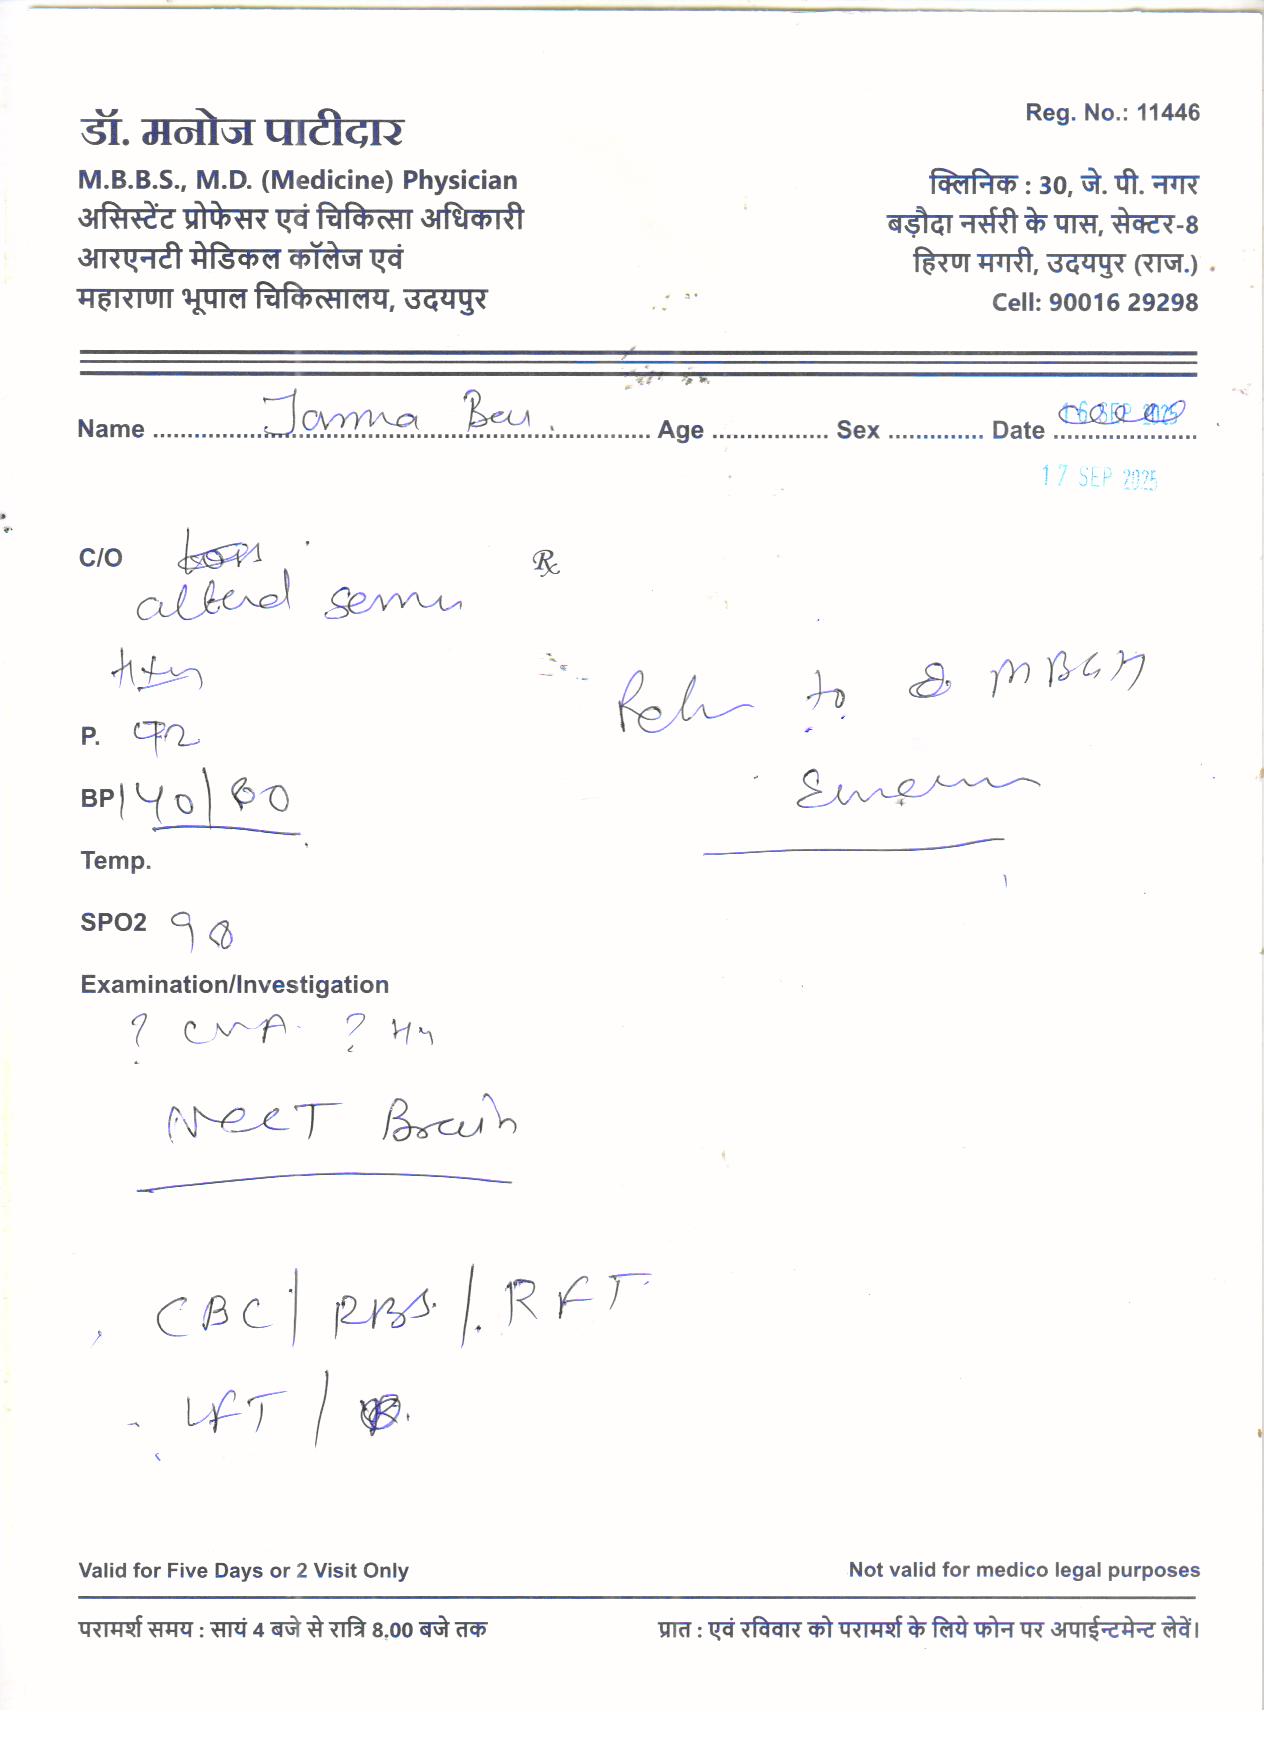 डॉ. मनोज पाटीदार
M.B.B.S., M.D. (Medicine) Physician
असिस्टेंट प्रोफेसर एवं चिकित्सा अधिकारी
आरएनटी मेडिकल कॉलेज एवं
महाराणा भूपाल चिकित्सालय, उदयपुर
Reg. No.: 11446
क्लिनिक : 30, जे. पी. नगर
बड़ौदा नर्सरी के पास, सेक्टर-8
हिरण मगरी, उदयपुर (राज.)
Cell: 90016 29298
Name Age Sex Date 16 SEP 2025
17 SEP 2025
C/O
℞
Htn
to MBGH
P.
BP 140/80
Temp.
SPO2 98
Examination/Investigation
? CVA ?
NCCT Brain
CBC / RBS / RFT
LFT /
Valid for Five Days or 2 Visit Only
Not valid for medico legal purposes
परामर्श समय : सायं 4 बजे से रात्रि 8.00 बजे तक
प्रात : एवं रविवार को परामर्श के लिये फोन पर अपाईन्टमेन्ट लेवें।